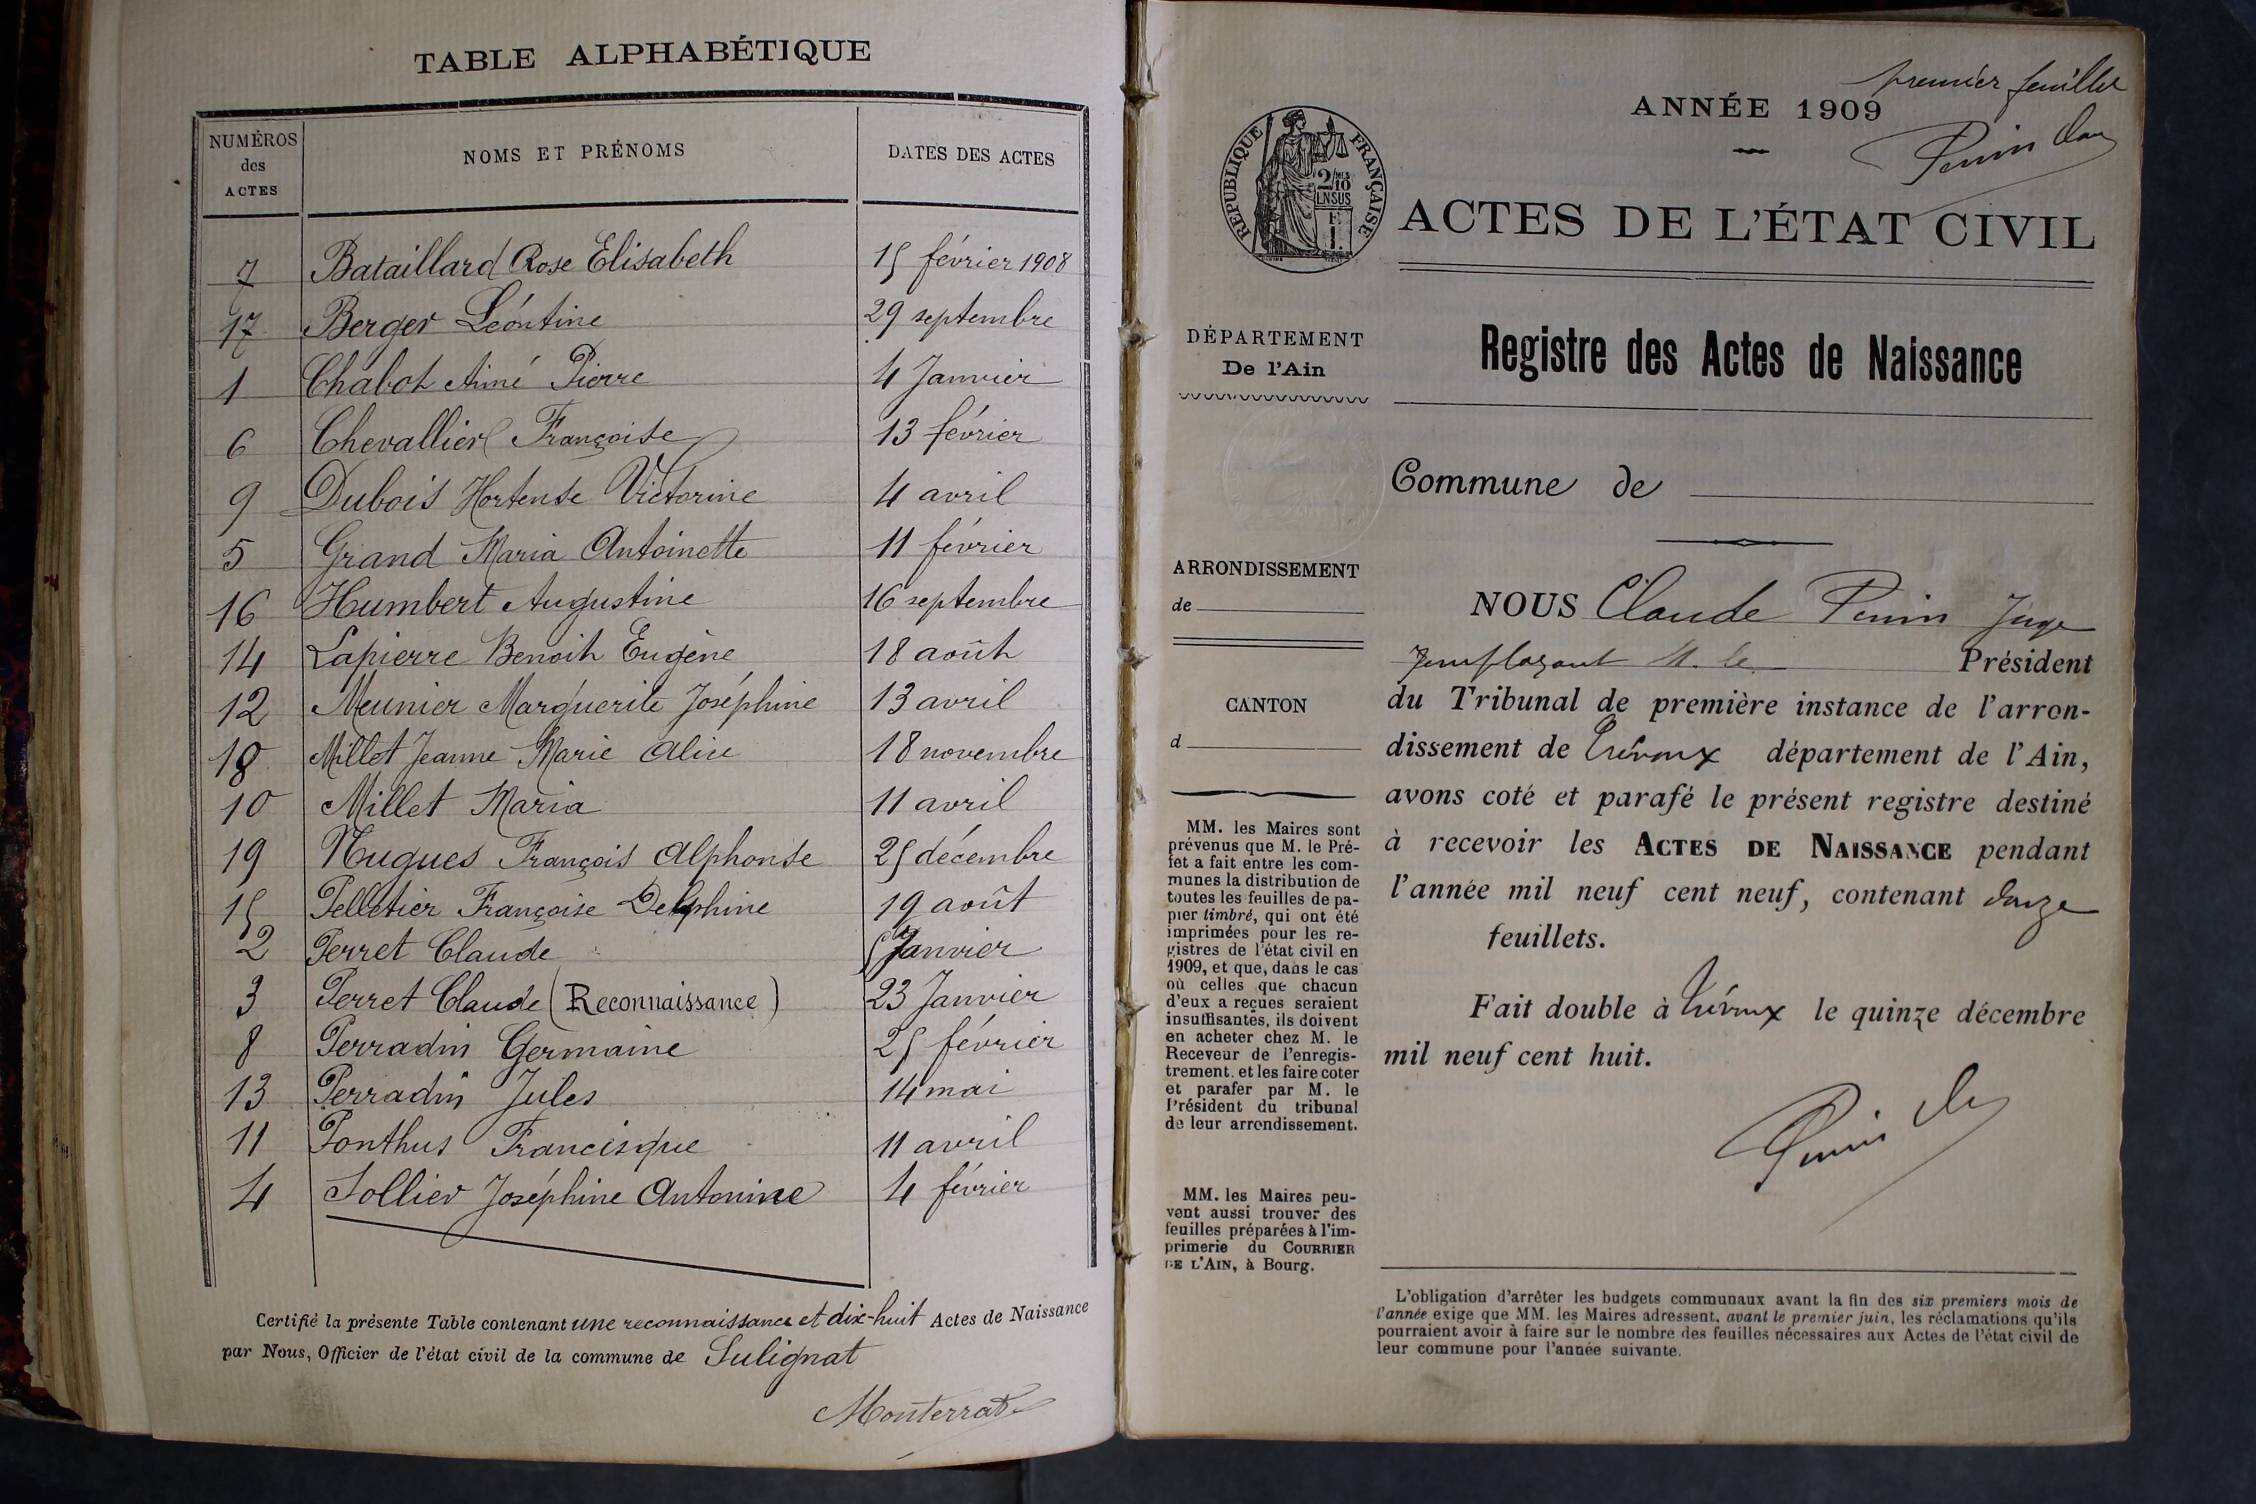 TABLE ALPHABÉTIQUE
NUMÉROS des ACTES
NOMS ET PRÉNOMS
DATES DES ACTES
7 Bataillard Rose Elisabeth 15 février 1908
17 Berger Léontine 29 septembre
1 Chabot Aimé Pierre 4 Janvier
6 Chevallier Françoise 13 février
9 Dubois Hortense Victorine 4 avril
5 Grand Maria Antoinette 11 février
16 Humbert Augustine 16 septembre
14 Lapierre Benoit Eugène 18 août
12 Meunier Marguerite Joséphine 13 avril
18 Millet Jeanne Marie Alice 18 novembre
10 Millet Maria 11 avril
19 Nugues François Alphonse 25 décembre
15 Pelletier Françoise Delphine 19 août
2 Perret Claude 5 Janvier
3 Perret Claude (Reconnaissance) 23 Janvier
8 Perradin Germaine 25 février
13 Perradin Jules 14 mai
11 Ponthus Francisque 11 avril
4 Sollier Joséphine Antonine 4 février
Certifié la présente Table contenant une reconnaissance et dix-huit Actes de Naissance
par Nous, Officier de l'état civil de la commune de Sulignat
Monterrat
premier feuillet
ANNÉE 1909
RÉPUBLIQUE FRANÇAISE
2/10 EN SUS
ACTES DE L'ÉTAT CIVIL
DÉPARTEMENT
De l'Ain
Registre des Actes de Naissance
Commune de
ARRONDISSEMENT
de
CANTON
d
MM. les Maires sont
prévenus que M. le Pré-
fet a fait entre les com-
munes la distribution de
toutes les feuilles de pa-
pier timbré, qui ont été
imprimées pour les re-
gistres de l'état civil en
1909, et que, dans le cas
où celles que chacun
d'eux a reçues seraient
insuffisantes, ils doivent
en acheter chez M. le
Receveur de l'enregis-
trement. et les faire coter
et parafer par M. le
Président du tribunal
de leur arrondissement.
MM. les Maires peu-
vent aussi trouver des
feuilles préparées à l'im-
primerie du COURRIER
DE L'AIN, à Bourg.
NOUS Claude Perrin Juge
remplaçant M. le Président
du Tribunal de première instance de l'arron-
dissement de Trévoux département de l'Ain,
avons coté et parafé le présent registre destiné
à recevoir les ACTES DE NAISSANCE pendant
l'année mil neuf cent neuf, contenant douze
feuillets.
Fait double à Trévoux le quinze décembre
mil neuf cent huit.
L'obligation d'arrêter les budgets communaux avant la fin des six premiers mois de
l'année exige que MM. les Maires adressent, avant le premier juin, les réclamations qu'ils
pourraient avoir à faire sur le nombre des feuilles nécessaires aux Actes de l'état civil de
leur commune pour l'année suivante.